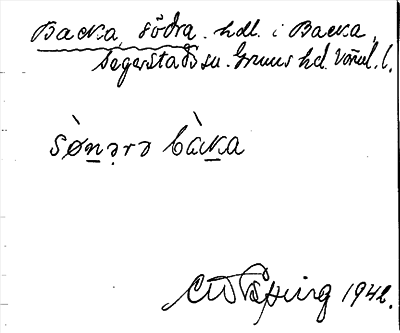 Backa, södra. hdl. i Backa,
Segerstads sn. Grums hd. Värml. l.
sø̀nərə bàcka
1942.